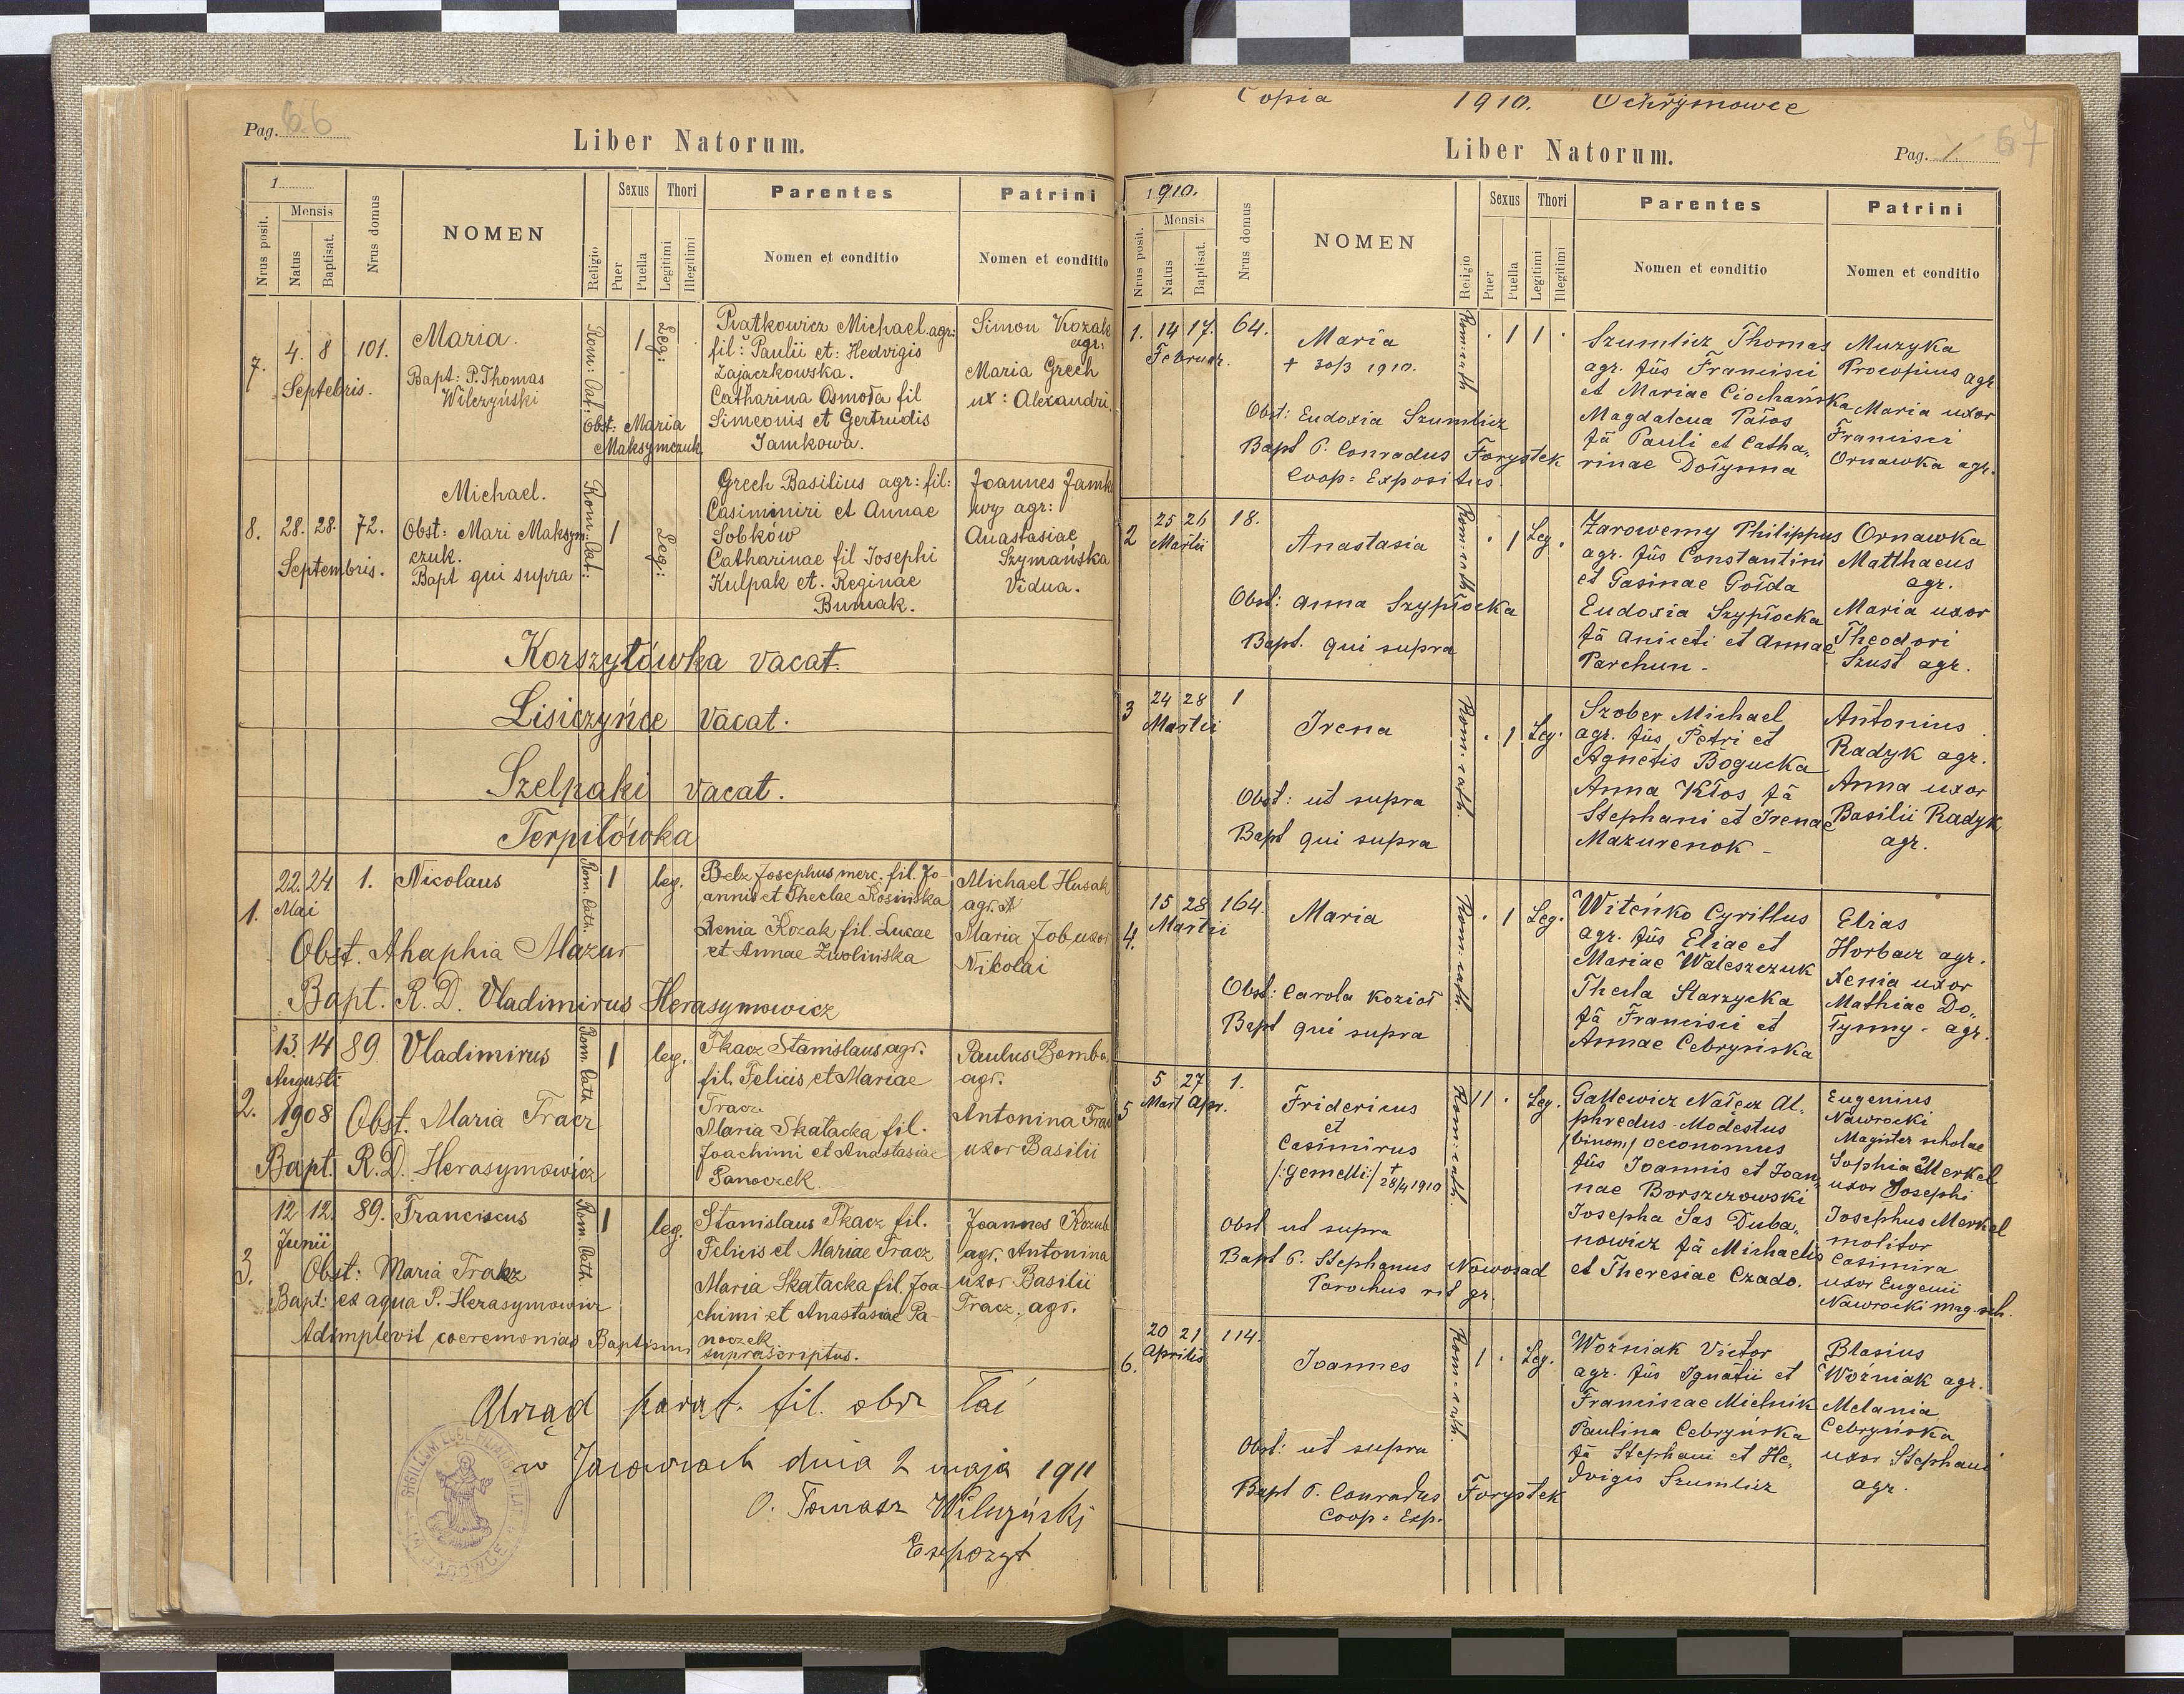 Pag. 66
Liber Natorum.
1
Nrus posit.
Mensis
Natus
Baptisat.
Nrus domus
NOMEN
Religio
Sexus
Puer
Puella
Thori
Legitimi
Illegitimi
Parentes
Nomen et conditio
Patrini
Nomen et conditio
7.
4. 8
Septebris.
101.
Maria.
Bapt: P. Thomas
Wilczyński
Rom: Cat:
Obst: Maria
Maksymczuk.
1
Leg:
Piatkowicz Michael agr:
fil: Paulii et: Hedvigis
Zajaczkowska.
Catharina Osmoła fil
Simeonis et Gertrudis
Jamkowa.
Simon Kozak
agr:
Maria Grech
ux: Alexandri.
8.
28. 28.
Septembris.
72.
Michael.
Obst: Mari Maksym:
czuk.
Bapt qui supra
Rom. Cat:
1
Leg:
Grech Basilius agr: fil:
Casiminiri et Annae
Sobków
Catharinae fil Josephi
Kulpak et. Reginae
Buniak.
Joannes Jamko
wy agr:
Anastasiae
Szymańska
Vidua.
Korszyłówka vacat.
Lisiczyńce vacat.
Szelpaki vacat.
Terpiłówka
1.
22. 24
Mai
1.
Nicolaus
Rom. Cath.
1
leg.
Belz Josephus merc. fil. Jo-
annis et Theclae Rosinska
Xenia Kozak fil. Lucae
et Annae Zwolinska
Michael Husak
agr.
Maria Job uxor
Nikolai
Obst. Ahaphia Mazur
Bapt. R. D. Vladimirus Herasymowicz
2.
13. 14
Augusti
1908
89.
Vladimirus
Rom. Cath
1
leg.
Tkacz Stanislaus agr.
fil. Felicis et Mariae
Tracz.
Maria Skatacka fil.
Joachimi et Anastasiae
Panoczek.
Paulus Bomba
agr.
Antonina Trac
uxor Basilii
Obst. Maria Tracz
Bapt. R. D. Herasymowicz
3.
12 12.
Junii
89.
Franciscus
Rom. Cath.
1
leg.
Stanislaus Tkacz fil.
Felicis et Mariae Tracz
Maria Skatacka fil. Joa-
chimi et Anastasiae Pa-
noczek
suprascriptus.
Joannes Kozub
agr. Antonina
uxor Basilii
Tracz. agr.
Obst: Maria Trakz
Bapt: ex aqua P. Herasymowicz
Adimplevit coeremonias Baptismi
Urząd paraf. fil. obr łać
w Jacowcach dnia 2 maja 1911
O. Tomasz Wilczyński
Expozyt
Copia 1910. Ochrymowce
Liber Natorum.
Pag. 1. 67
1910.
Nrus posit.
Mensis
Natus
Baptisat.
Nrus domus
NOMEN
Religio
Sexus
Puer
Puella
Thori
Legitimi
Illegitimi
Parentes
Nomen et conditio
Patrini
Nomen et conditio
1.
14 17.
Februar.
64.
Maria
+ 30/3 1910.
Obst: Eudoxia Szumlicz
Bapt P. Conradus Forystek
Coop: Expositus.
Rom: cath
. 1 1 .
Szumlicz Thomas
agr. füs Francisci
et Mariae Ciochańska
Magdalena Pałos
fä Pauli et Catha„
rinae Dołynna
Muzyka
Procopius agr
Maria uxor
Francisci
Ornawka agr.
2
25 26
Martii
18.
Anastasia
Obst: Anna Szypłocka
Bapt. qui supra
Rom: cath.
. 1 Leg.
Zarowemy Philippus
agr. füs Constantini
et Gasinae Gołda
Eudoxia Szypłocka
fä Aniceti et Annae
Parchun -
Ornawka
Matthaeus
agr.
Maria uxor
Theodori
Szust agr.
3
24 28
Martii
1
Irena
Obst: ut supra
Bapt qui supra
Rom: cath.
. 1 Leg.
Szober Michael
agr. füs Petri et
Agnetis Bogucka
Anna Kłos fä
Stephani et Irenae
Mazurenok -
Antonius
Radyk agr.
Anna uxor
Basilii Radyk
agr.
4.
15 28
Martii
164.
Maria
Obst: Carola Kozioł
Bapt qui supra
Rom: cath.
. 1 Leg.
Witeńko Cyrillus
agr. füs Eliae et
Mariae Waleszczuk
Thecla Starzycka
fä Francisci et
Annae Cebryńska
Elias
Horbacz agr.
Xenia uxor
Mathiae Do„
łynny - agr.
5
5 27
Mart Apr.
1.
Fridericus
et
Casimirus
/:gemelli:/ + 28/4 1910
Obst ut supra
Bapt P. Stephanus Nowosad
Parochus rit gr.
Rom: cath.
11 . Leg.
Gallewicz Nałęcz Al„
phredus-Modestus
/binom/ oeconomus
füs Joannis et Joan„
nae Borszczowski
Josepha Sas Duba„
nowicz fä Michaelis
et Theresiae Czado.
Eugenius
Nawrocki
Magister scholae
Sophia Merkel
uxor Josephi
Josephus Merkel
molitor
Casimira
uxor Eugenii
Nawrocki mag. sch.
6.
20 21
Aprilis
114.
Joannes
Obst: ut supra
Bapt P. Conradus Forystek
Coop: Exp.
Rom: cath.
1 . Leg.
Woźniak Victor
agr. füs Ignatii et
Franciscae Mielnik
Paulina Cebryńska
fä Stephani et He„
dvigis Szumlicz
Blasius
Woźniak agr.
Melania
Cebryńska
uxor Stephani
agr.